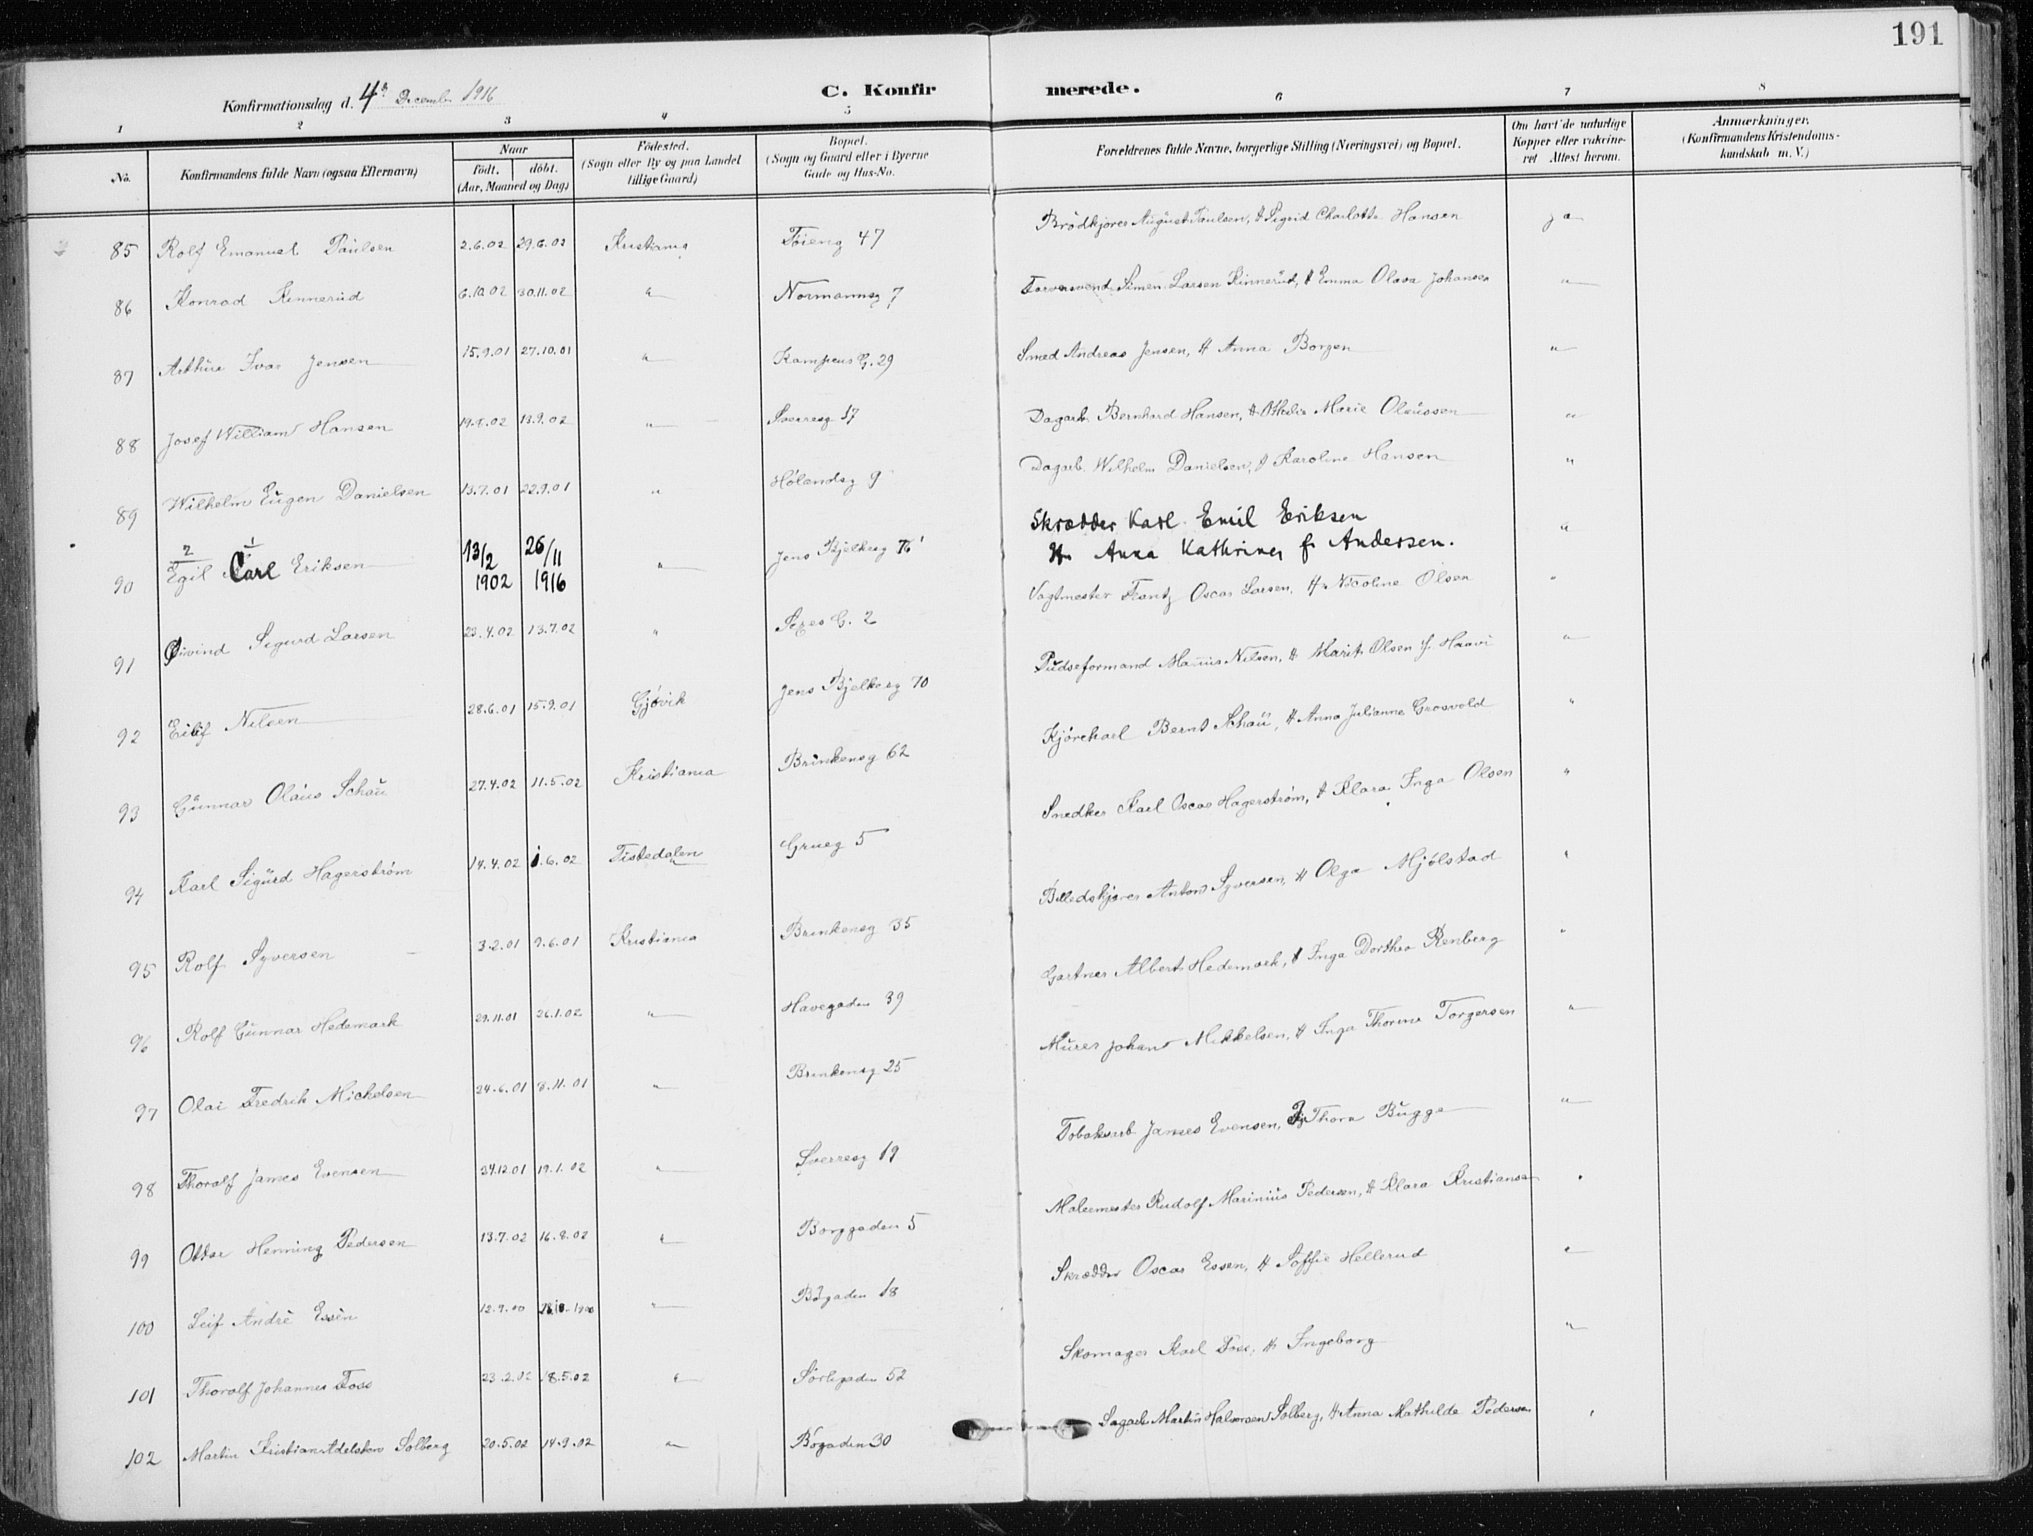 191
Konfirmationsdag d. 4de December 1916
C. Konfir merede.
1 2 3 4 5 6 7 8
No. Konfirmandens fulde Navn (ogsaa Efternavn) Naar født. døbt. (Aar, Maaned og Dag) Fødested. (Sogn eller By og paa Landet tillige Gaard) Bopæl. (Sogn og Gaard eller i Byerne Gade og Hus-No. Forældrenes fulde Navne, borgerlige Stilling (Næringsvei) og Bopæl. Om havt de naturlige Kopper eller vakcineret Attest herom. Anmærkninger. (Konfirmandens Kristendomskundskab m. V.)
85 Rolf Emanuel Paulsen 2.6.02 29.6.02 Kristiania Tøieng 47 Brødkjører August Paulsen, H Sigrid Charlotte Hansen ja
86 Konrad Kinnerud 6.10.02 30.11.02 " Normannsg 7 Farversvend Simen Larsen Kinnerud, H Emma Olava Johansen "
87 Arthur Ivar Jensen 15.9.01 27.10.01 " Kampens G. 29 Smed Andreas Jensen, H Anna Borgen "
88 Josef William Hansen 19.8.02 13.9.02 " Sverresg 17 Dagarb Bernhard Hansen, H Othelie Marie Olaussen "
89 Wilhelm Eugen Danielsen 13.7.01 22.9.01 " Hølandsg 9 Dagarb. Wilhelm Danielsen, H Karoline Hansen "
90 2 Egil 1 Carl Eriksen 13/2 1902 26/11 1916 " Jens Bjelkesg 76 Skrædder Karl Emil Eriksen
H Anna Kathrine f Andersen. "
91 Øivind Sigurd Larsen 23.4.02 13.7.02 " Sexes G. 2 Vagtmester Frantz Oscar Larsen, H Nicoline Olsen "
92 Eilif Nilsen 28.6.01 15.9.01 Gjøvik Jens Bjelkesg 70 Pudseformand Marius Nilsen, H Marit Olsen f. Haavi "
93 Gunnar Olaus Schau 27.4.02 11.5.02 Kristiania Brinkensg 62 Kjørekarl Bernt Schau, H Anna Julianne Grosvold "
94 Karl Sigurd Hagerstrøm 14.4.02 1.6.02 Tistedalen Grueg 5 Snedker Karl Oscar Hagerstrøm, H Klara Inga Olsen "
95 Rolf Syversen 3.2.01 9.6.01 Kristiania Brinkensg 35 Billedskjærer Anton Syversen, H Olga Mjølstad "
96 Rolf Gunnar Hedemark 29.11.01 26.1.02 " Havegaden 39 Gartner Albert Hedemark, H Inga Dorthea Renberg "
97 Olai Fredrik Michelsen 24.6.01 3.11.01 " Brinkensg 25 Murer Johan Mikkelsen, H Inga Thorine Torgersen "
98 Thoralf James Evensen 24.12.01 19.1.02 " Sverresg 19 Tobaksarb James Evensen, Thora Bugge "
99 Ottar Henning Pedersen 13.7.02 16.8.02 " Borggaden 5 Malermester Rudolf Marinius Pedersen, H Klara Kristiansen "
100 Leif Andrè Essèn 12.9.00 1900 " Bøgaden 18 Skrædder Oscar Essen, H Soffie Hellerud "
101 Thoralf Johannes Foss 23.2.02 18.5.02 " Sørligaden 52 Skomager Karl Foss, H Ingeborg "
102 Martin Kristian Adelsten Solberg 20.5.02 14.9.02 " Bøgaden 30 Sagarb Martin Halvorsen Solberg, H Anna Mathilde Pedersen "